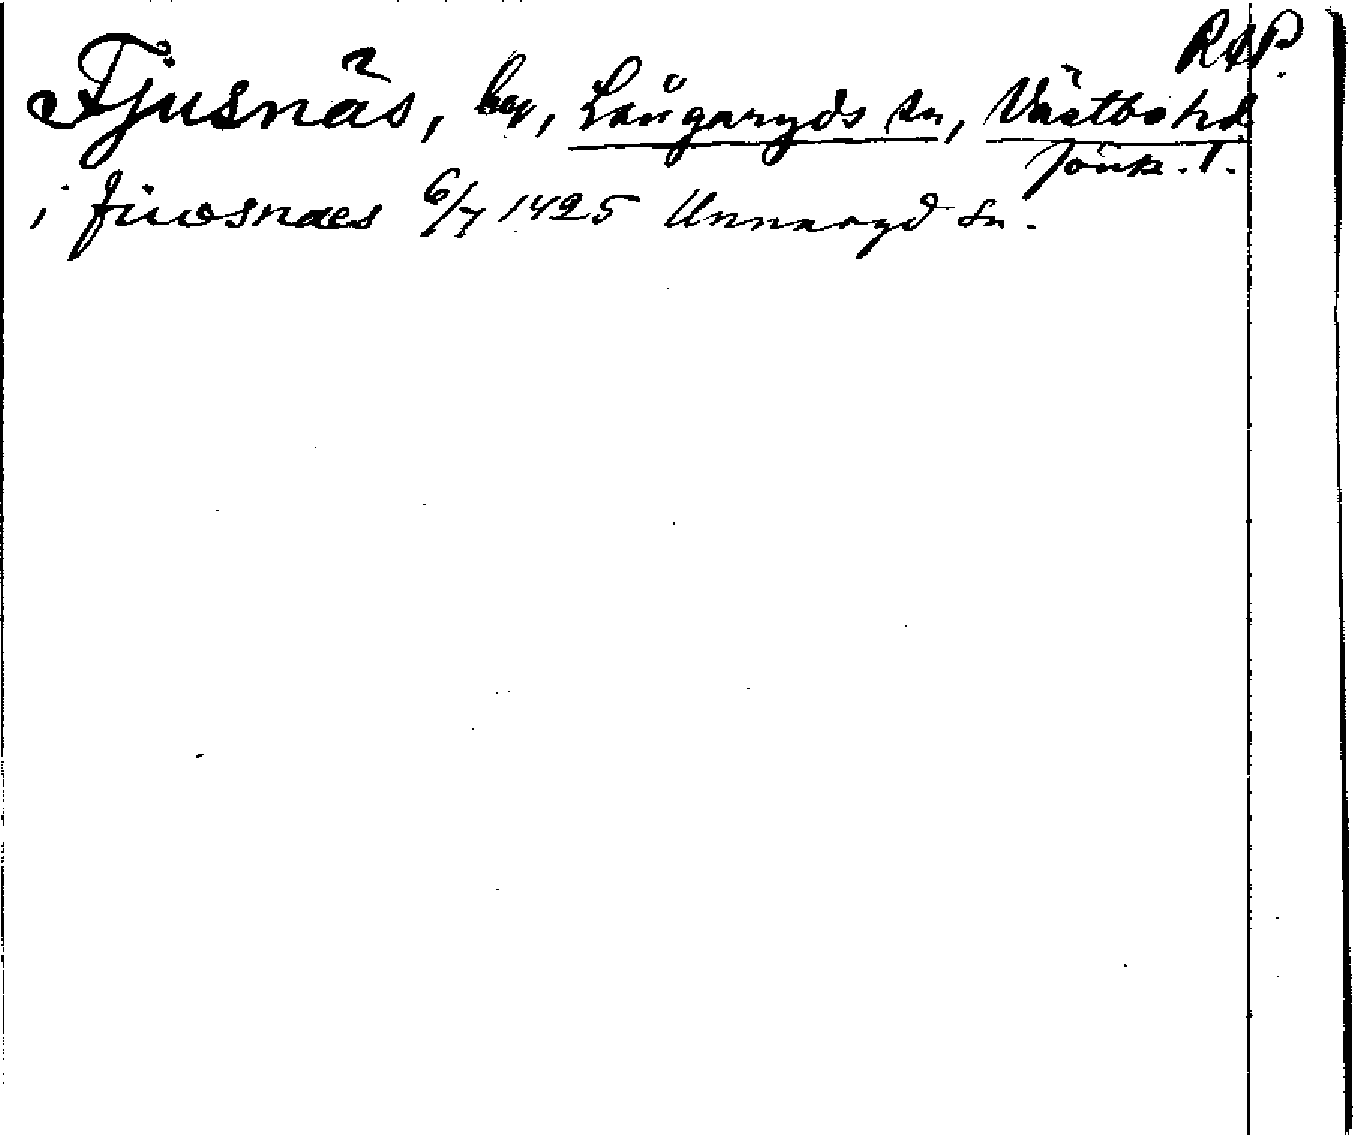 RAP.
Fjusnäs, by, Långaryds sn, Västbo hd
Jönk. l.
i fiwosnaes 6/7 1425 Unnaryd sn.